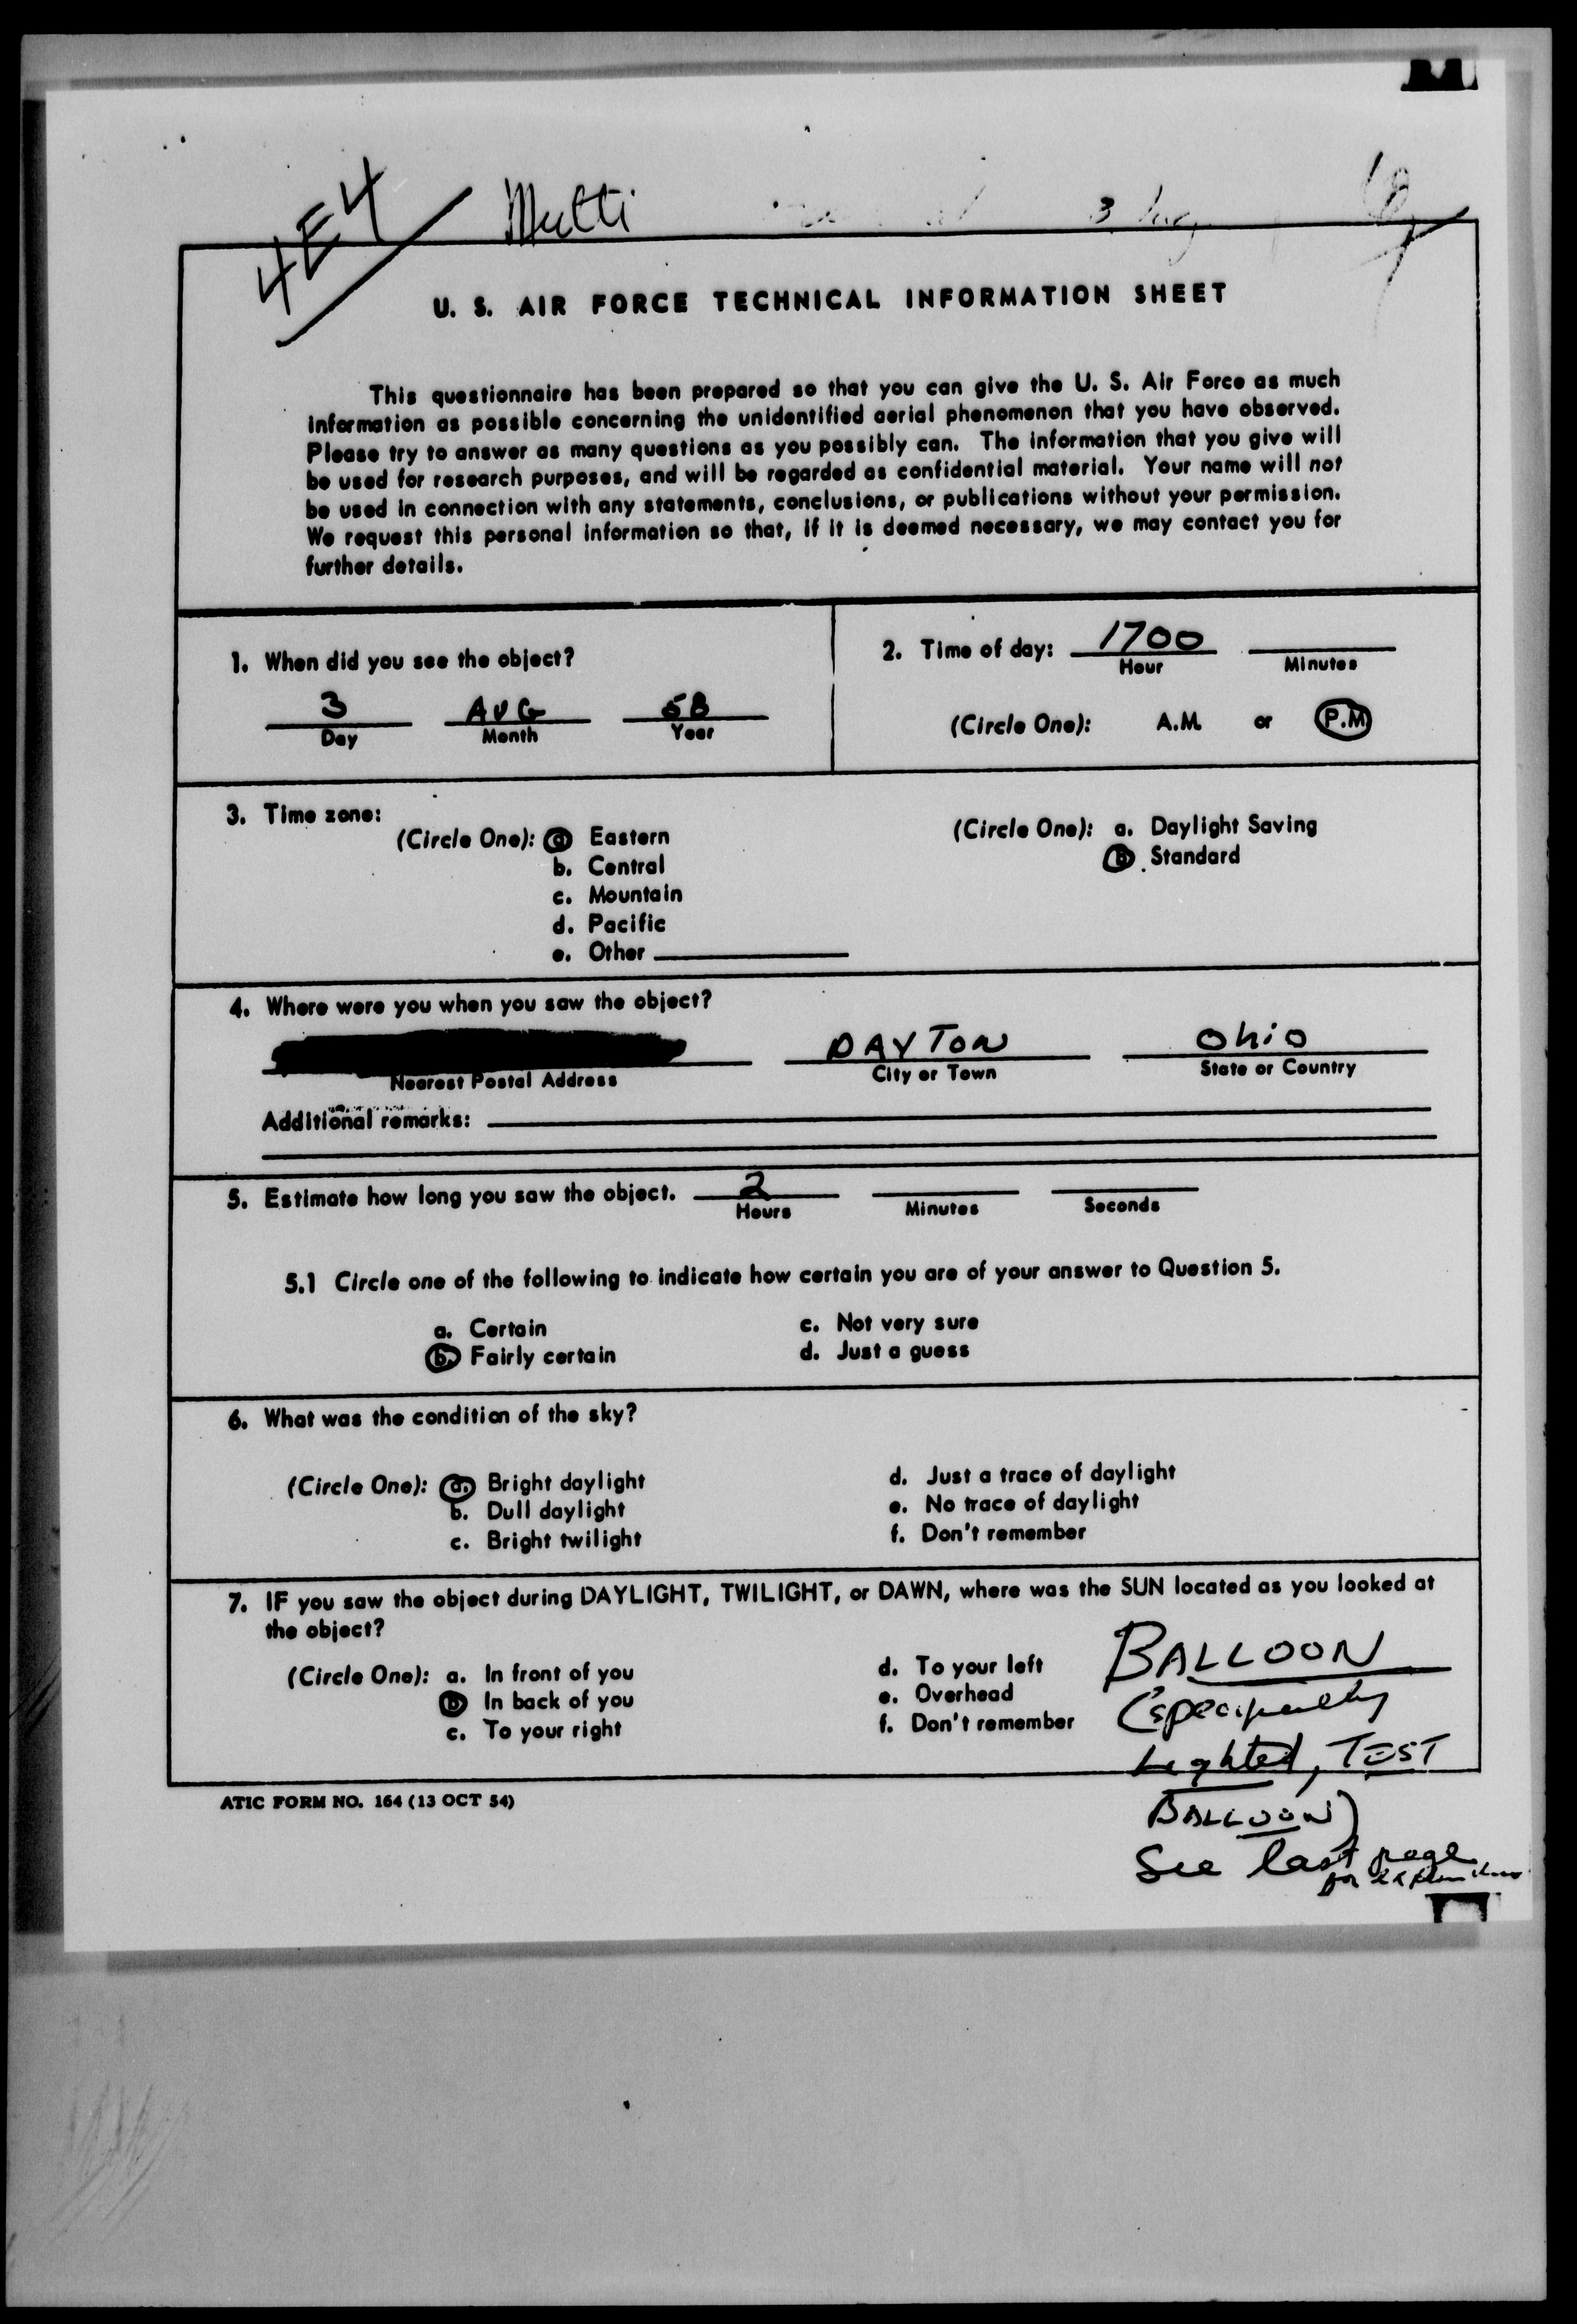 4E4
Multi 3 Aug
U. S. AIR FORCE TECHNICAL INFORMATION SHEET
This questionnaire has been prepared so that you can give the U. S. Air Force as much
information as possible concerning the unidentified aerial phenomenon that you have observed.
Please try to answer as many questions as you possibly can. The information that you give will
be used for research purposes, and will be regarded as confidential material. Your name will not
be used in connection with any statements, conclusions, or publications without your permission.
We request this personal information so that, if it is deemed necessary, we may contact you for
further details.
1. When did you see the object?
3 AUG 58
Day Month Year
2. Time of day: 1700
Hour Minutes
(Circle One): A.M. or P.M
3. Time zone:
(Circle One): a Eastern
b. Central
c. Mountain
d. Pacific
e. Other
(Circle One): a. Daylight Saving
b. Standard
4. Where were you when you saw the object?
DAYTON Ohio
Nearest Postal Address City or Town State or Country
Additional remarks:
5. Estimate how long you saw the object. 2
Hours Minutes Seconds
5.1 Circle one of the following to indicate how certain you are of your answer to Question 5.
a. Certain c. Not very sure
b. Fairly certain d. Just a guess
6. What was the condition of the sky?
(Circle One): a. Bright daylight
b. Dull daylight
c. Bright twilight
d. Just a trace of daylight
e. No trace of daylight
f. Don't remember
7. IF you saw the object during DAYLIGHT, TWILIGHT, or DAWN, where was the SUN located as you looked at
the object?
(Circle One): a. In front of you
b In back of you
c. To your right
d. To your left
e. Overhead
f. Don't remember
BALLOON
Lighted, TEST
BALLOON)
See last page
for
ATIC FORM NO. 164 (13 OCT 54)